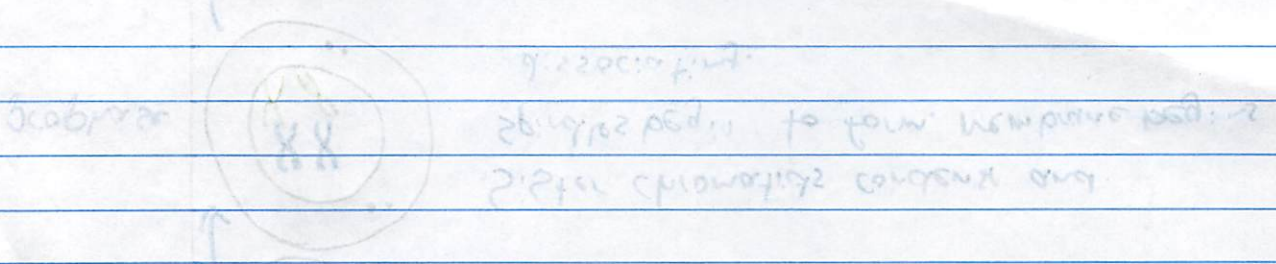 Prophase
Sister chromatids condense and
spindles begin to form. Membrane begins
dissociating.